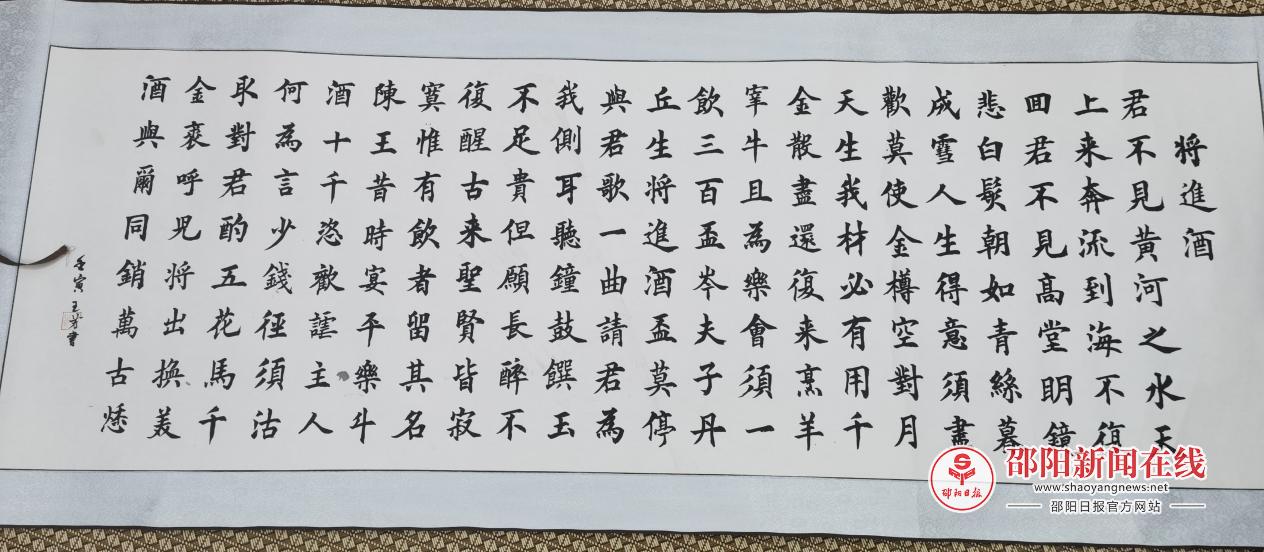 将進酒
君不見黄河之水天
上来奔流到海不復
回君不見高堂明鏡
悲白髮朝如青絲暮
成雪人生得意須盡
歡莫使金樽空對月
天生我材必有用千
金散盡還復来烹羊
宰牛且為樂會須一
飲三百盃岑夫子丹
丘生将進酒盃莫停
與君歌一曲請君為
我側耳聽鐘鼓饌玉
不足貴但願長醉不
復醒古来聖賢皆寂
寞惟有飲者留其名
陳王昔時宴平樂斗
酒十千恣歡謔主人
何為言少錢徑須沽
取對君酌五花馬千
金裘呼児将出換美
酒與爾同銷萬古愁
壬寅王芳書
邵阳日报
邵阳新闻在线
www.shaoyangnews.net
邵阳日报官方网站